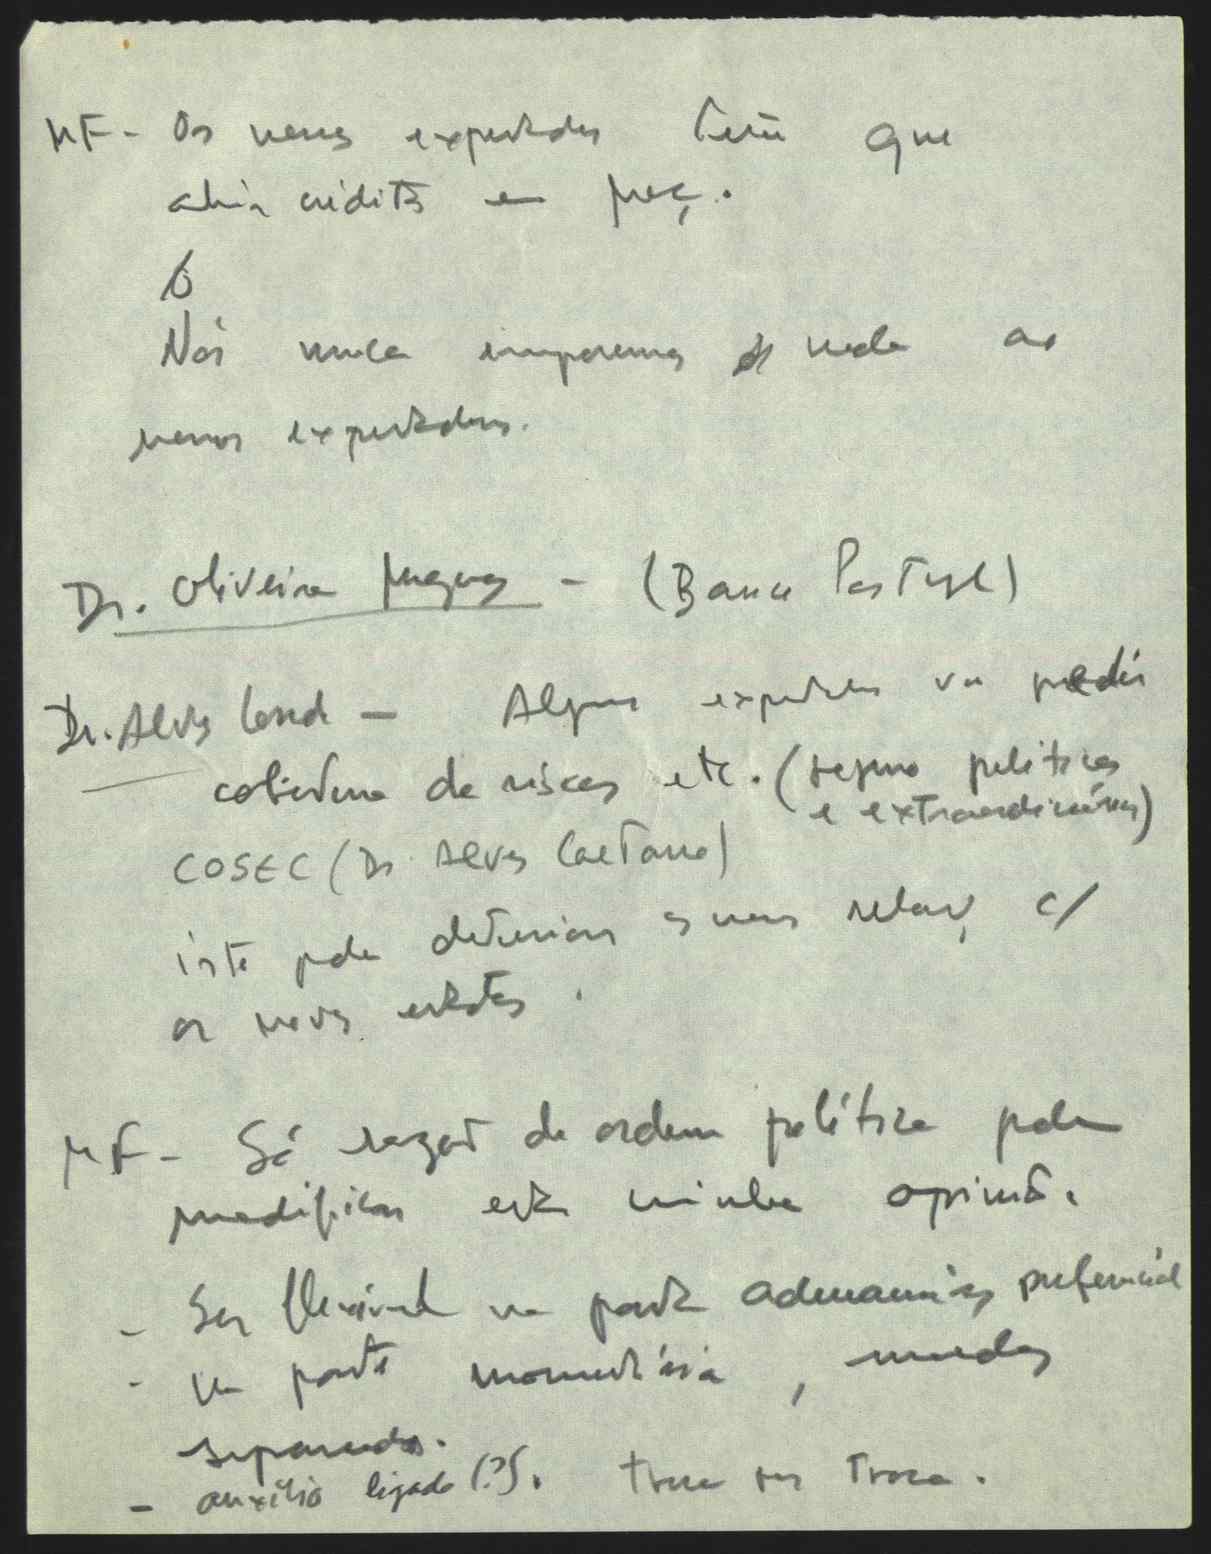 MF - Os nossos exportadores têm que
abrir créditos em
Nós nunca impusemos nada aos
nossos exportadores.
Dr. Oliveira Marques - (Banco Portugal)
Dr. Alves - Alguns exportadores vão pedir
cobertura de riscos etc. (seguro políticos
e extraordinários)
COSEC (Dr. Alves Caetano)
isto pode deteriorar as nossas relações c/
os novos estados.
MF - Só razões de ordem política podem
modificar esta minha opinião.
- Ser flexível na parte aduaneira, preferencial
- Na parte monetária, moedas
separadas.
- auxílio ligado (?). troca por troca.